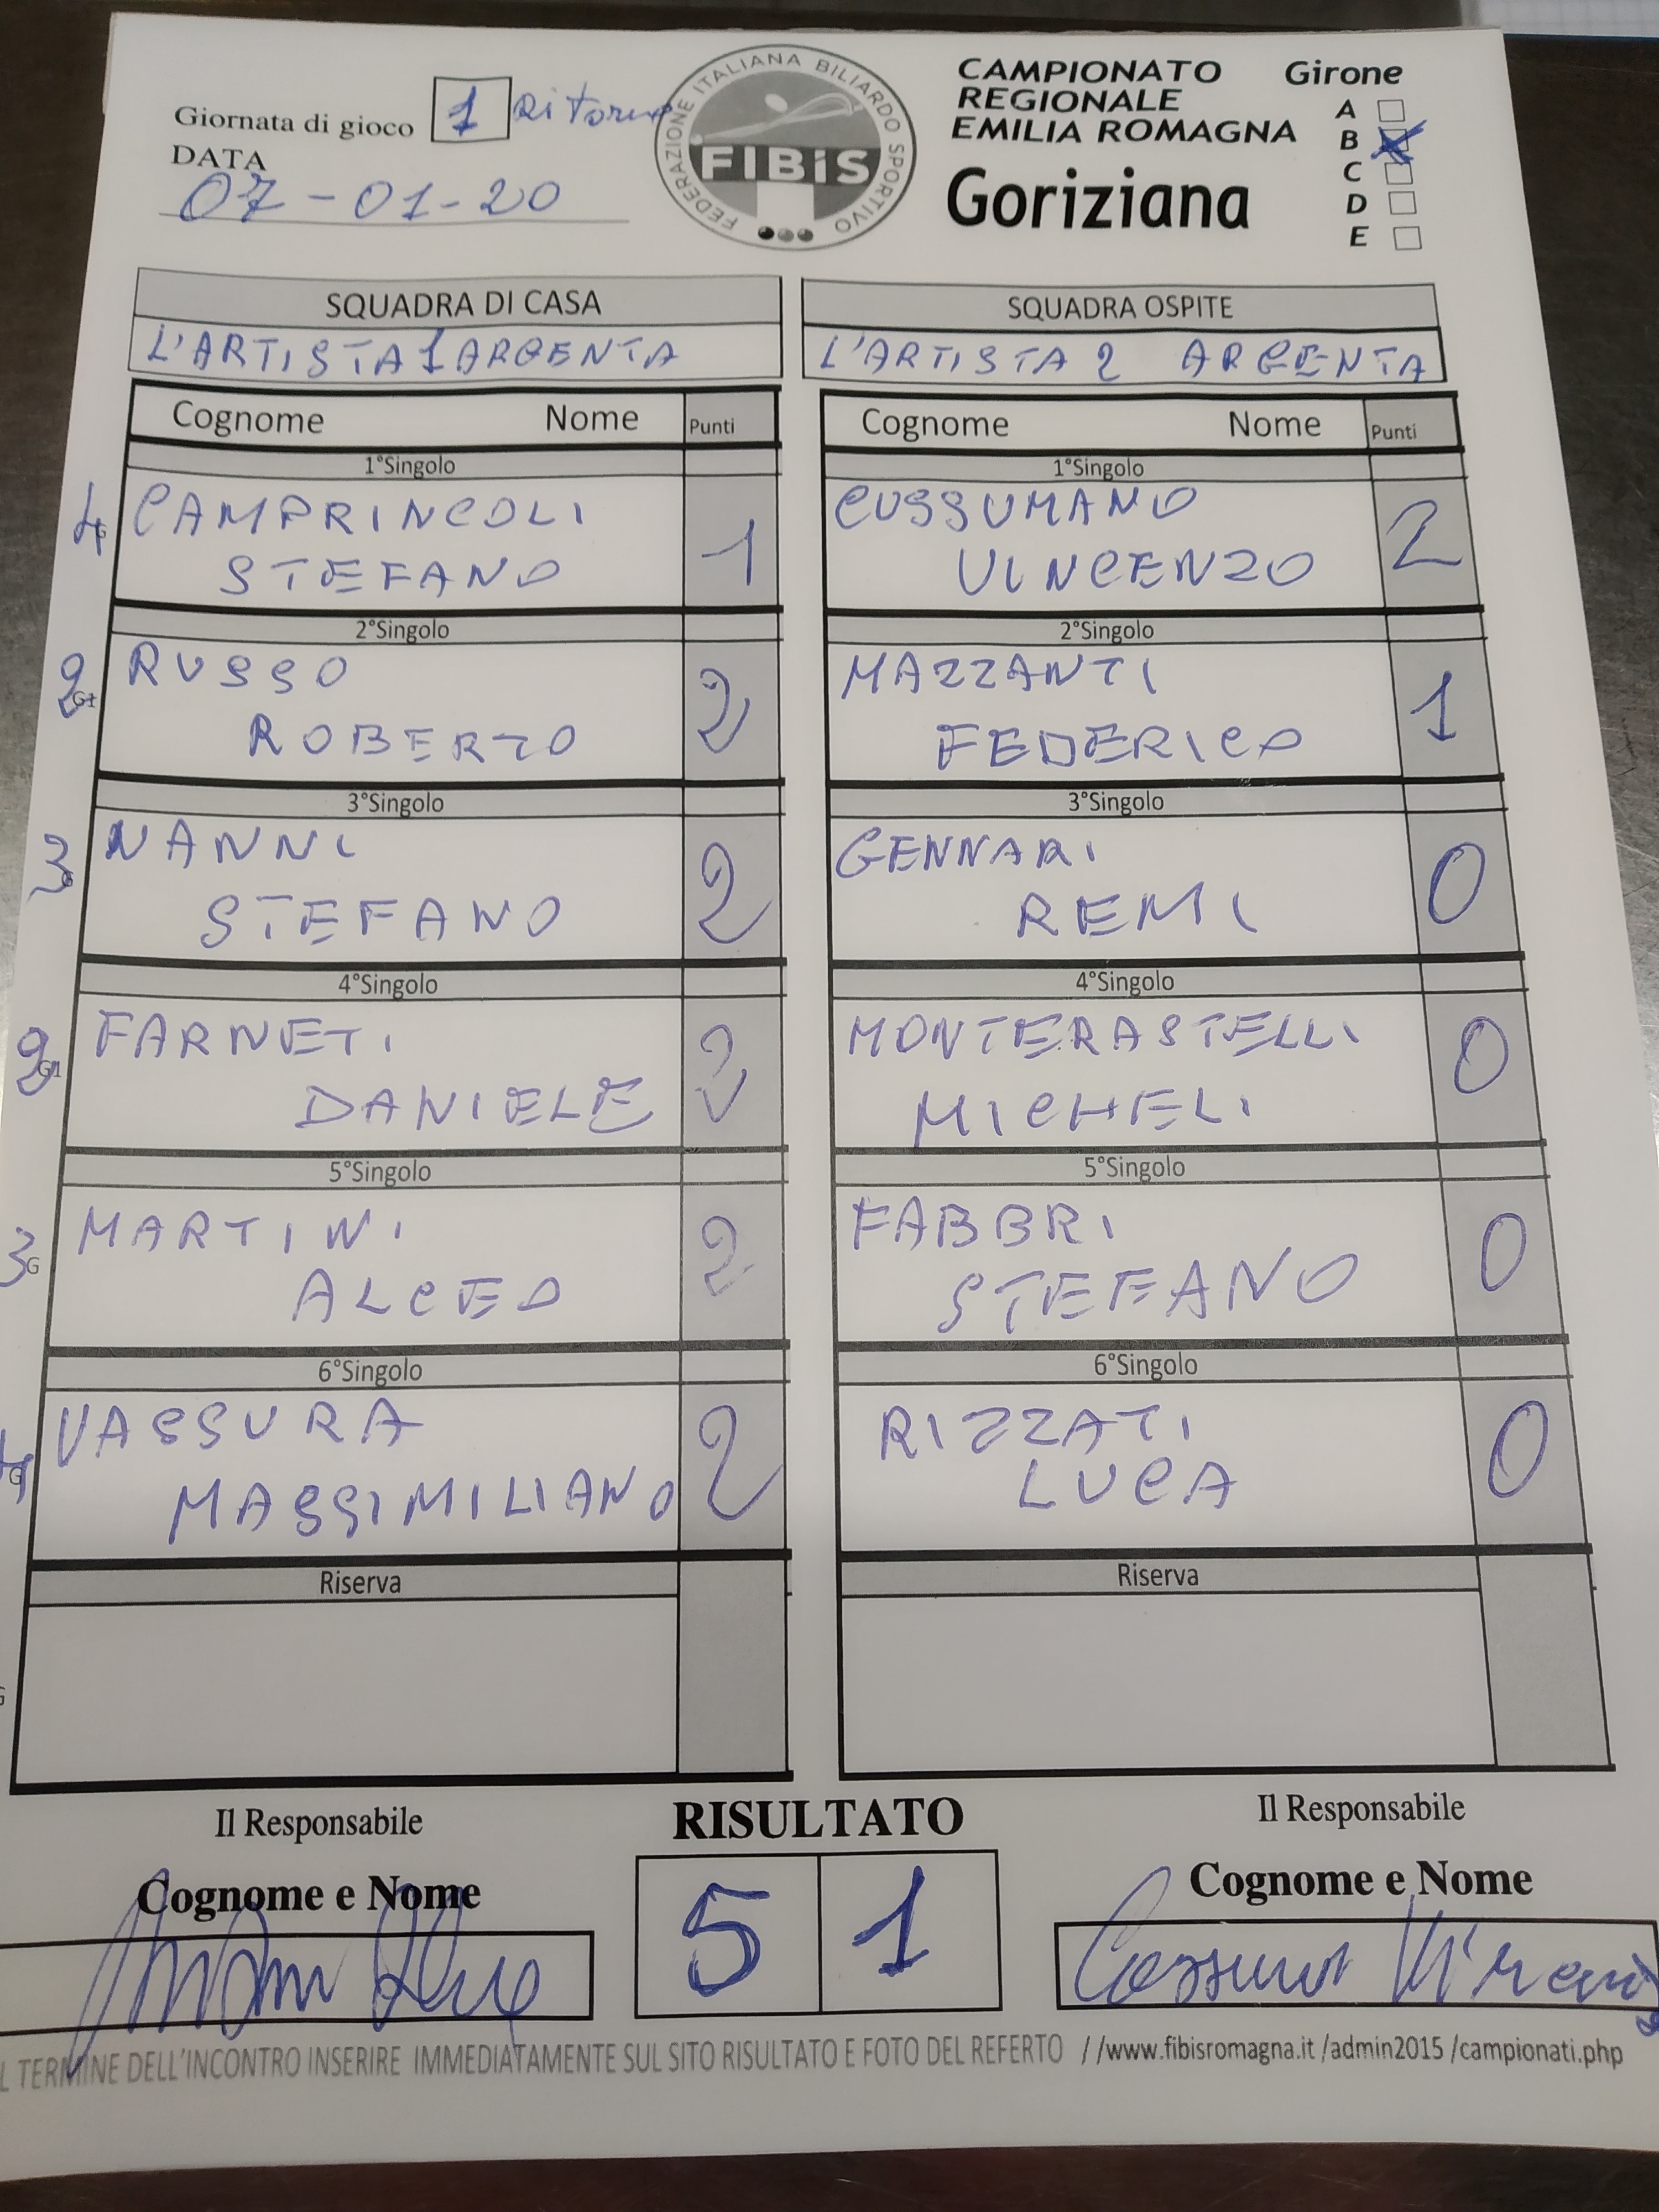 Giornata di gioco 1 Ritorno
DATA
07-01-20
FEDERAZIONE ITALIANA BILIARDO SPORTIVO
FIBiS
CAMPIONATO
REGIONALE
EMILIA ROMAGNA
Goriziana
Girone
A
B
C
D
E
SQUADRA DI CASA
L'ARTISTA 1 ARGENTA
SQUADRA OSPITE
L'ARTISTA 2 ARGENTA
Cognome Nome Punti
Cognome Nome Punti
1°Singolo
1°Singolo
4 CAMPRINCOLI
STEFANO
1
CUSSUMANO
VINCENZO
2
2°Singolo
2°Singolo
2 RUSSO
ROBERTO
2
MAZZANTI
FEDERICO
1
3°Singolo
3°Singolo
3 NANNI
STEFANO
2
GENNARI
REMI
0
4°Singolo
4°Singolo
2 FARNETI
DANIELE
2
MONTERASTELLI
MICHELI
0
5°Singolo
5°Singolo
3G MARTINI
ALCEO
2
FABBRI
STEFANO
0
6°Singolo
6°Singolo
VASSURA
MASSIMILIANO
2
RIZZATI
LUCA
0
Riserva
Riserva
Il Responsabile
Cognome e Nome
RISULTATO
5 1
Il Responsabile
Cognome e Nome
L TERMINE DELL'INCONTRO INSERIRE IMMEDIATAMENTE SUL SITO RISULTATO E FOTO DEL REFERTO //www.fibisromagna.it /admin2015 /campionati.php